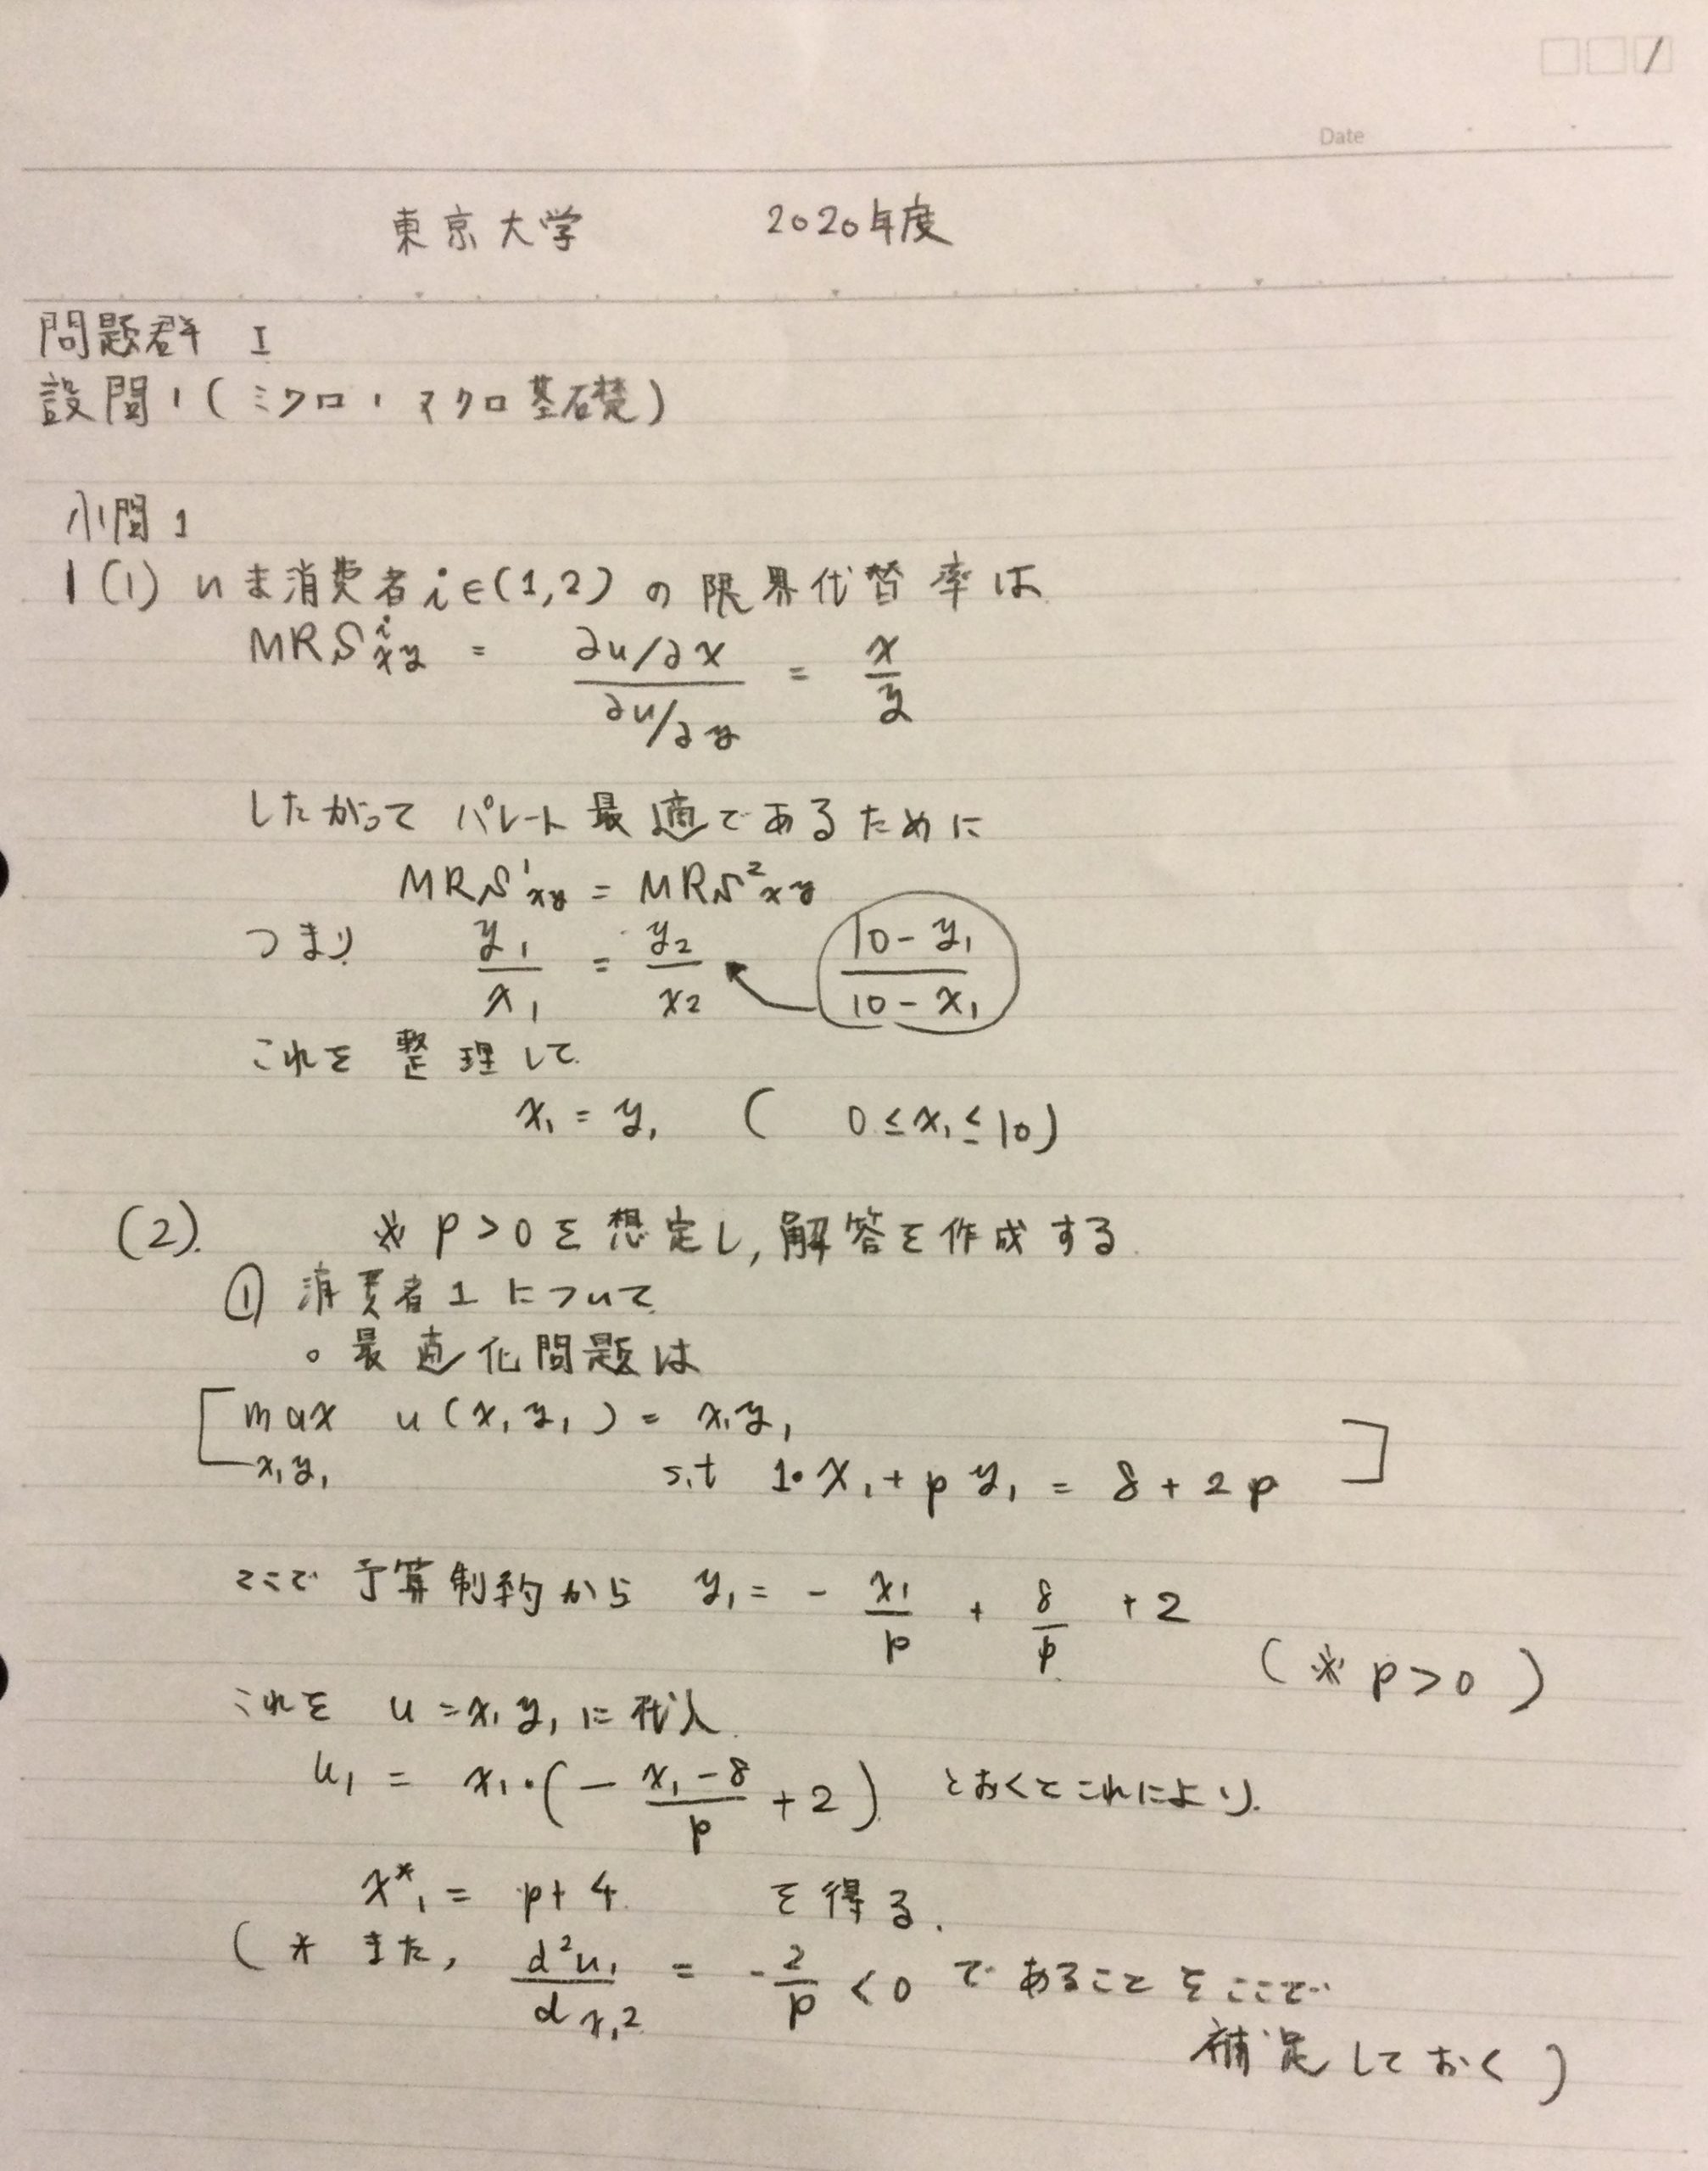 Date
東京大学 2020年度
問題群 I
設問1(ミクロ・マクロ基礎)
小問1
1(1) いま消費者i∈(1,2)の限界代替率は
MRS^i_xy = (∂u/∂x)/(∂u/∂y) = x/y
したがってパレート最適であるために
MRS^1_xy = MRS^2_xy
つまり y₁/x₁ = y₂/x₂ ← (10-y₁)/(10-x₁)
これを整理して
x₁ = y₁ ( 0≤x₁≤10)
(2). ※ p>0を想定し,解答を作成する.
① 消費者1について
○最適化問題は
[max u(x₁y₁) = x₁y₁
x₁y₁ s.t 1・x₁+py₁ = 8+2p ]
ここで予算制約から y₁ = - x₁/p + 8/p +2
(※ p>0)
これを u=x₁y₁に代入.
u₁ = x₁・(- (x₁-8)/p +2) とおくとこれにより.
x*₁ = p+4 を得る.
(* また, d²u₁/dx₁² = -2/p <0 であることをここで
補足しておく)